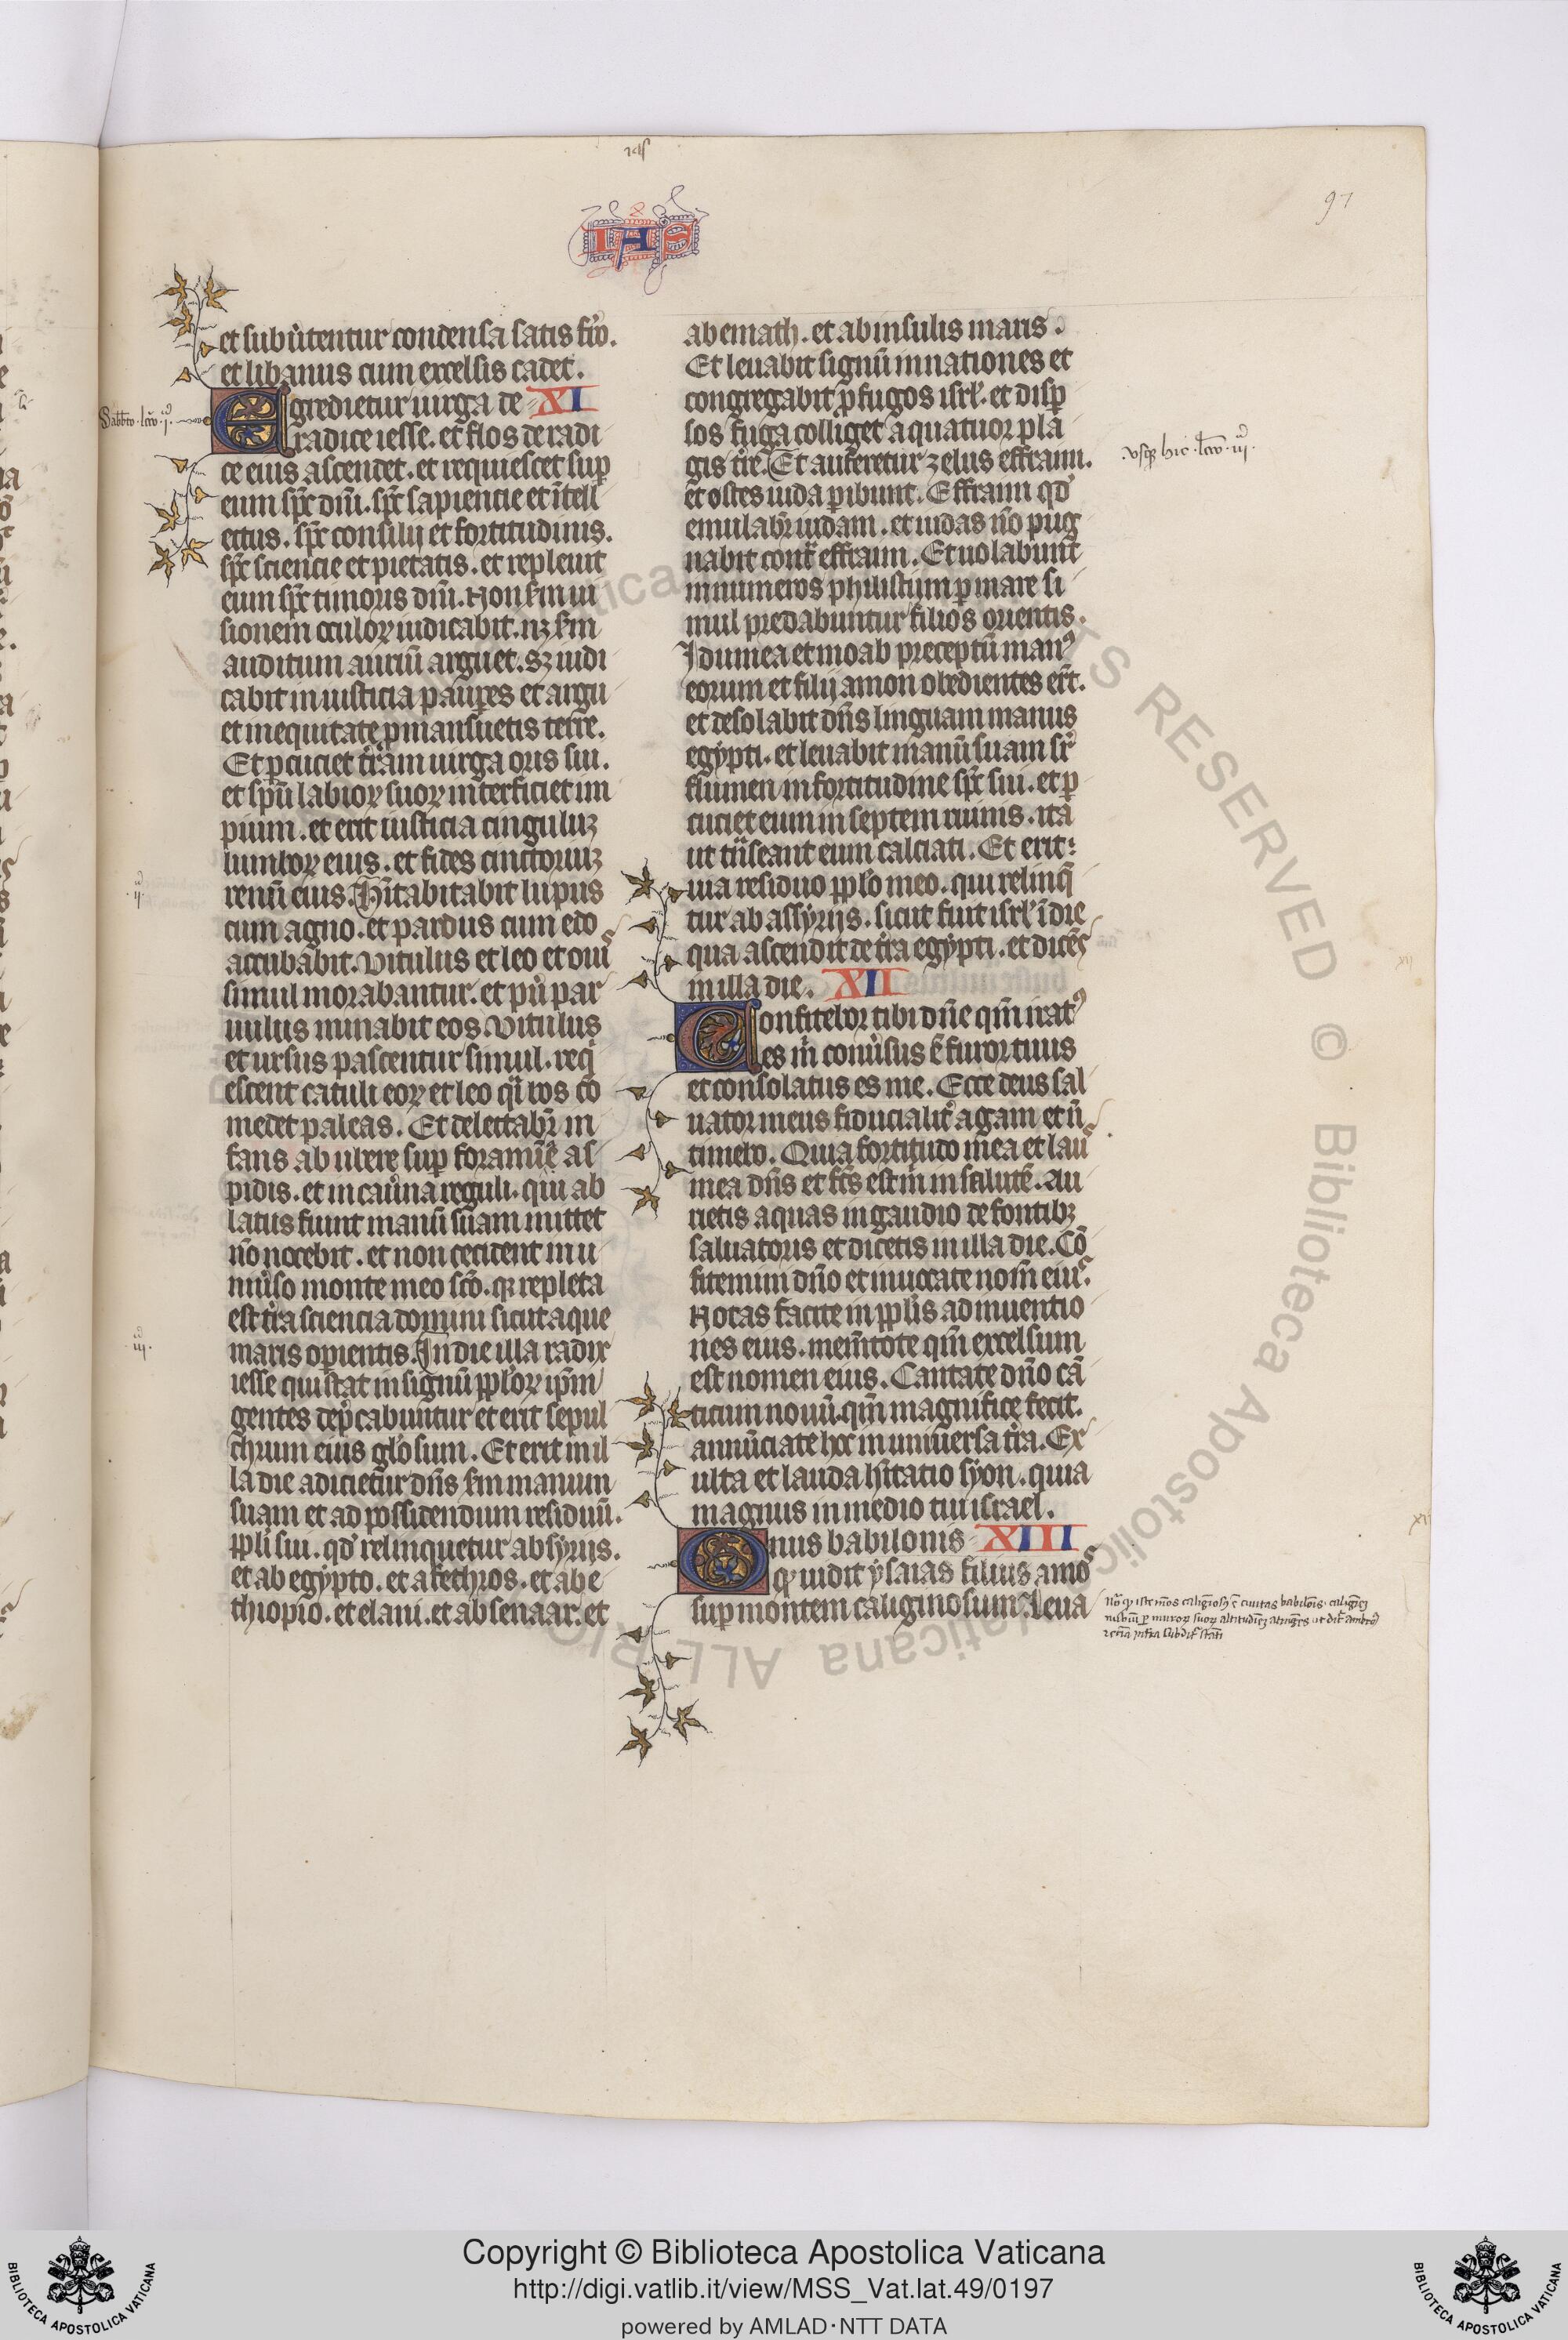 ysa
97
IAS
et subuͥtentur condensa saltus fr̄ro.
et libanus cum excelsis cadet.
Egredietur uirga de XI
radice iesse. et flos de radi
ce eius ascendet. et requiescet sup̱
eum sp̄c dn̄i. sp̄c sapiencie et ītell
ectus. sp̄c consilij et fortitudinis.
sp̄c sciencie et pietatis. et repleuit
eum sp̄c timoris dn̄i. Non scd̄m ui
sionem oculoꝝ iudicabit. nꝫ scd̄m
auditum auriū arguet. sꝫ iudi
cabit in iusticia paup̱es et argu
et in equitate ꝑ mansuetis terre.
Et ꝑcuciet tr̄am uirga oris sui.
et sp̄u labioꝝ suoꝝ interficiet im
pium. et erit iusticia cinguluꝫ
lumboꝝ eius. et fides cinctoriuꝫ
renū eius. Hītabitabit lupus
cum agno. et pardus cum edo
accubabit. Vitulus et leo et ouis
simul morabantur. et pūͥ par
uulus minabit eos. Vitulus
et ursus pascentur simul. reqͥ
escent catuli eoꝝ et leo qͣi bos cō
medet paleas. Et delectabr̄ in
fans ab ubere suꝑ foramīē as
pidis. et in cau̓na reguli. qui ab
latus fuit manū suam mittet
nō nocebit. et non occident in u
niu̓so monte meo sc̄o. qꝛ repleta
est tr̄a sciencia domini sicut aque
maris operientis. In die illa radix
iesse qui stat in signū pp̄loꝝ ip̄m
gentes dep̄cabuntur et erit sepul
chrum eius gl̓osum. Et erit in il
la die adicietur dn̄s scd̄m manum
suam et ad possidendum residuū.
pp̄li sui. qd̓ relinquetur ab syrijs.
et ab egypto. et a fethros. et ab e
thiopio. et elam. et ab senaar. et
ab emath. et ab insulis maris.
Et leuabit signū in nationes et
congregabit ꝓfugos isrl̓. et disꝑ
sos fuga colliget a quatuor pla
gis tr̄e. Et auferetur zelus effraim.
et ostes iuda ꝑibunt. Effraim qd̓
emulabr̄ iudam. et iudas nō pug
nabit contͣ effraim. Et uolabunt
in umeros philistijm ꝑ mare si
mul predabuntur filios orientis.
Idumea et moab preceptū manꝰ
eorum et filij amon obedientes er̄t.
et desolabit dn̄s linguam manus
egypti. et leuabit manū suam sr̄
flumen in fortitudine sp̄c sui. et ꝑ
cuciet eum in septem riuinis. ita
ut tn̄seant eum calciati. Et erit
uia residuo pp̄lo meo. qui relinq̄
tur ab assyrijs. sicut fuit isrl̓ ī die
qua ascendit de tr̄a egypti. et dices
in illa die. XII
Confitebor tibi dn̄e qm̄ iratꝰ
es m̄ conu̓sus ē furor tuus
et consolatus es me. Ecce deus sal
uator meus fiducialit̓ agam et n̄
timebo. Quia fortitudo mea et laus
mea dn̄s et fc̄s est m̄ in salutē. Au
rietis aquas in gaudio de fontibꝫ
saluatoris et dicetis in illa die. Cō
fitemini dn̄o et inuocate nom̄ eius.
Notas facite in pp̄lis ad inuentio
nes eius. mem̄tote qm̄ excelsum
est nomen eius. Cantate dn̄o cā
ticum nouū. qm̄ magnifice fecit.
annūciate hoc in uniuersa tr̄a. Ex
ulta et lauda h̄itatio syon. quia
magnus in medio tui israel.
Onus babilonis XIII
qd̓ uidit ysaias filius amos
suꝑ montem caliginosum. Leua
Sabb̄to. lc̄o. iͣ.
ijͣ.
iijͣ.
vsqꝫ hic. lc̄o. iijͣ.
Copyright © Biblioteca Apostolica Vaticana
http://digi.vatlib.it/view/MSS_Vat.lat.49/0197
powered by AMLAD·NTT DATA
BIBLIOTECA APOSTOLICA VATICANA
BIBLIOTECA APOSTOLICA VATICANA